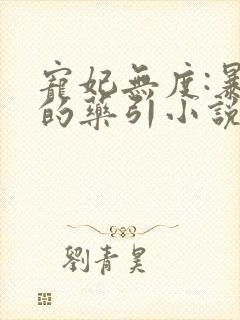 寵妃無度:暴
的藥引小說
劉青昊